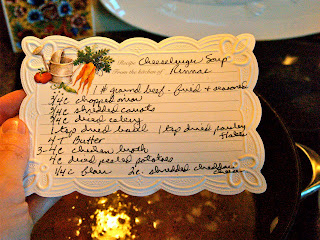 Recipe Cheeseburger Soup
From the kitchen of Rennae
1 # ground beef - fried & seasoned
3/4 c chopped onion
3/4 c shredded carrots
3/4 c diced celery
1 tsp dried basil 1 tsp dried parsley flakes
4 T Butter
3-4 c chicken broth
4 c diced peeled potatoes
1/4 c flour 2 c. shredded cheddar cheese